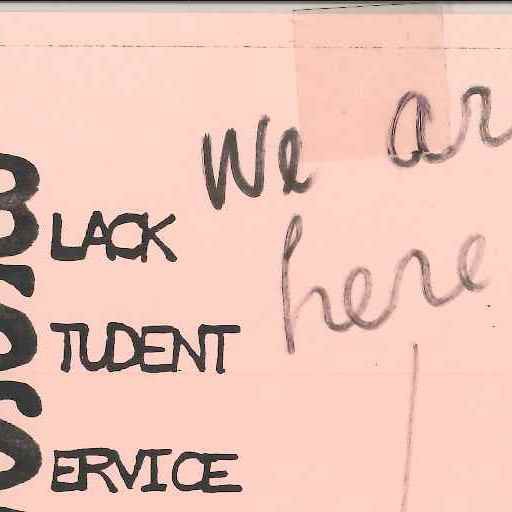 We ar
here
BLACK
STUDENT
SERVICE